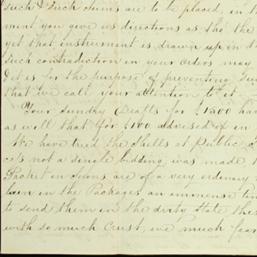 such & such sums are to be placed, in th
ment you give us directions as tho' the
yet that instrument is drawn up in th
such contradiction in your orders may
it is for the purpose of preventing
that we call your attention to it.
Your Sundry Drafts for $1500 ha
as well that for $100 advised of in
We have tried the Skulls at Public
cops not a single bidding was made
Packet in Toms are of a very ordinary
turn in the Packages an immense
to send them in the dirty state these
with so much Crust, we much fear